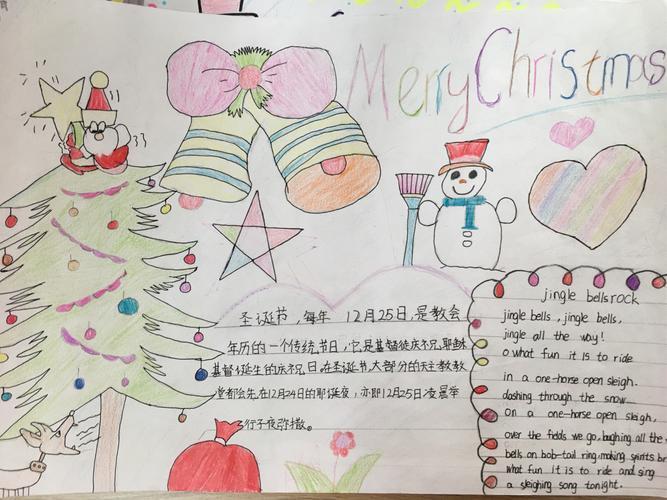 Merry Christmas
圣诞节,每年 12月25日,是教会
年历的一个传统节日,它是基督徒庆祝耶稣
基督诞生的庆祝日,在圣诞节,大部分的天主教教
堂都会先在12月24日的耶诞夜,亦即12月25日凌晨举
行子夜弥撒。
jingle bells rock
jingle bells, jingle bells,
jingle all the way!
o what fun it is to ride
in a one-horse open sleigh.
dashing through the snow
on a one-horse open sleigh,
over the fields we go, laughing all the
bells on bob-tail ring, making spirits br
what fun it is to ride and sing
a sleighing song tonight.